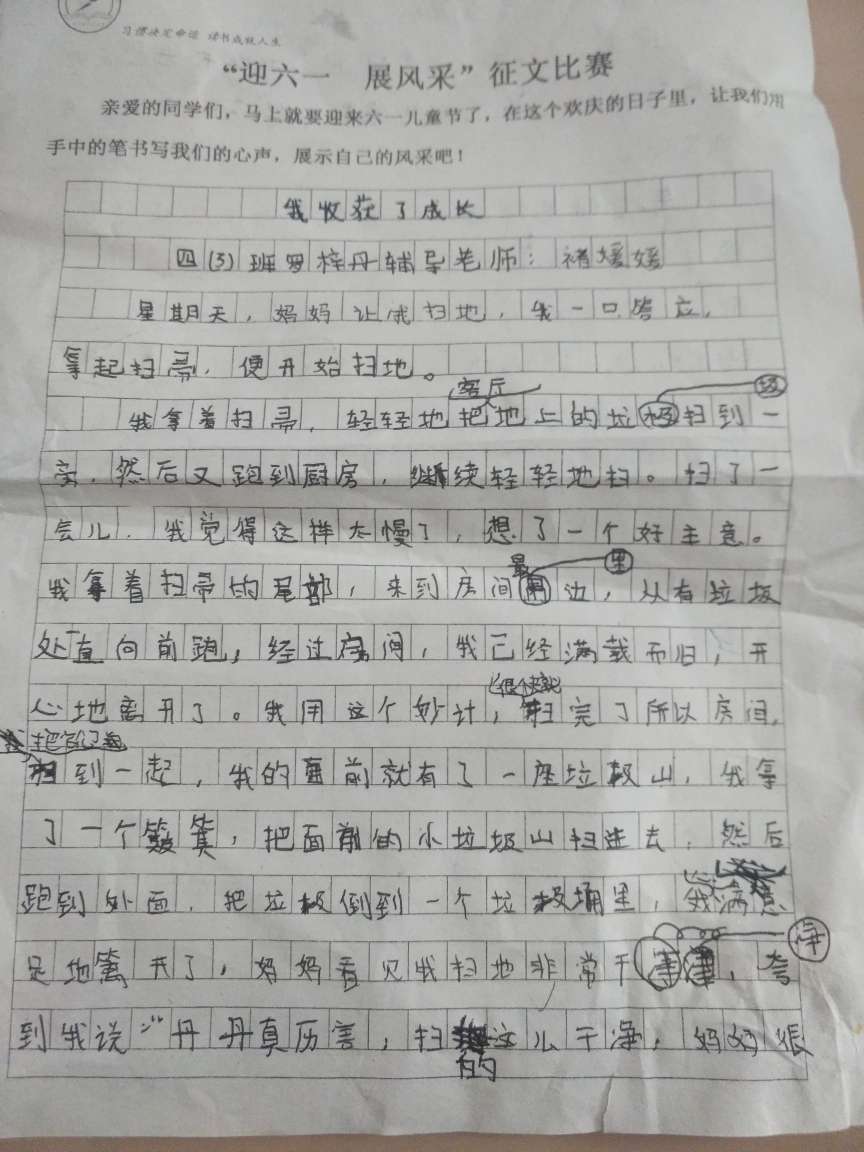 习惯决定命运 读书成就人生
“迎六一 展风采”征文比赛
亲爱的同学们，马上就要迎来六一儿童节了，在这个欢庆的日子里，让我们用
手中的笔书写我们的心声，展示自己的风采吧！
我收获了成长
四(3)班罗梓丹辅导老师：褚媛媛
星期天，妈妈让我扫地，我一口答应，
拿起扫帚，便开始扫地。
客厅
圾
我拿着扫帚，轻轻地把地上的垃极扫到一
旁，然后又跑到厨房，继续轻轻地扫。扫了一
会儿，我觉得这样太慢了，想了一个好主意。
最 里
我拿着扫帚的尾部，来到房间边，从有垃圾
处一直向前跑，经过房间，我已经满载而归，开
心地离开了。我用这个妙计，扫完了所以房间，
把它们
扫到一起，我的面前就有了一座垃极山，我拿
了一个簸箕，把面前的小垃圾山扫进去，然后
跑到外面，把垃极倒到一个垃极桶里，我满意
净
足地离开了，妈妈看见我扫地非常干，夸
到我说：“丹丹真历害，扫这儿干净，妈妈很
的